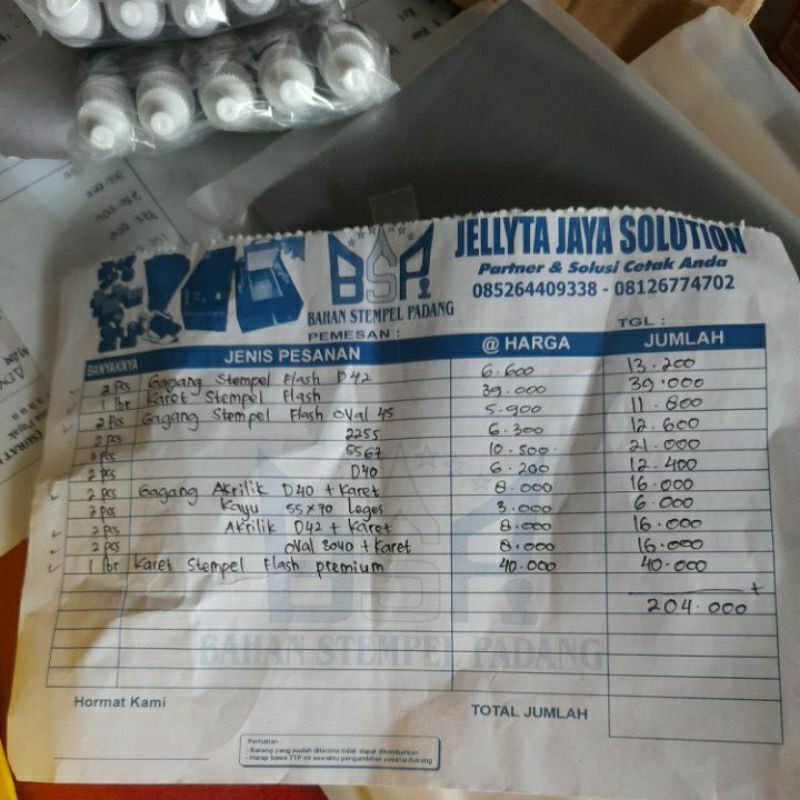 JELLYTA JAYA SOLUTION
Partner & Solusi Cetak Anda
085264409338 - 08126774702
BSP
BAHAN STEMPEL PADANG
PEMESAN :
TGL :
BANYAKNYA JENIS PESANAN @ HARGA JUMLAH
2 Pcs Gagang Stempel Flash D42 6.600 13.200
1 lbr Karet Stempel Flash 39.000 39.000
2 Pcs Gagang Stempel Flash Oval 45 5.900 11.800
2 Pcs 2255 6.300 12.600
2 pcs 5567 10.500 21.000
2 pcs D40 6.200 12.400
2 pcs Gagang Akrilik D40 + Karet 8.000 16.000
2 pcs Kayu 55x70 Leges 3.000 6.000
2 pcs Akrilik D42 + Karet 8.000 16.000
2 pcs Oval 3040 + Karet 8.000 16.000
1 lbr Karet Stempel Flash premium 40.000 40.000
+
204.000
BAHAN STEMPEL PADANG
Hormat Kami
TOTAL JUMLAH
Perhatian :
- Barang yang sudah diterima tidak dapat dikembalikan
- Harap bawa TTP ini sewaktu pengambilan pesanan/barang